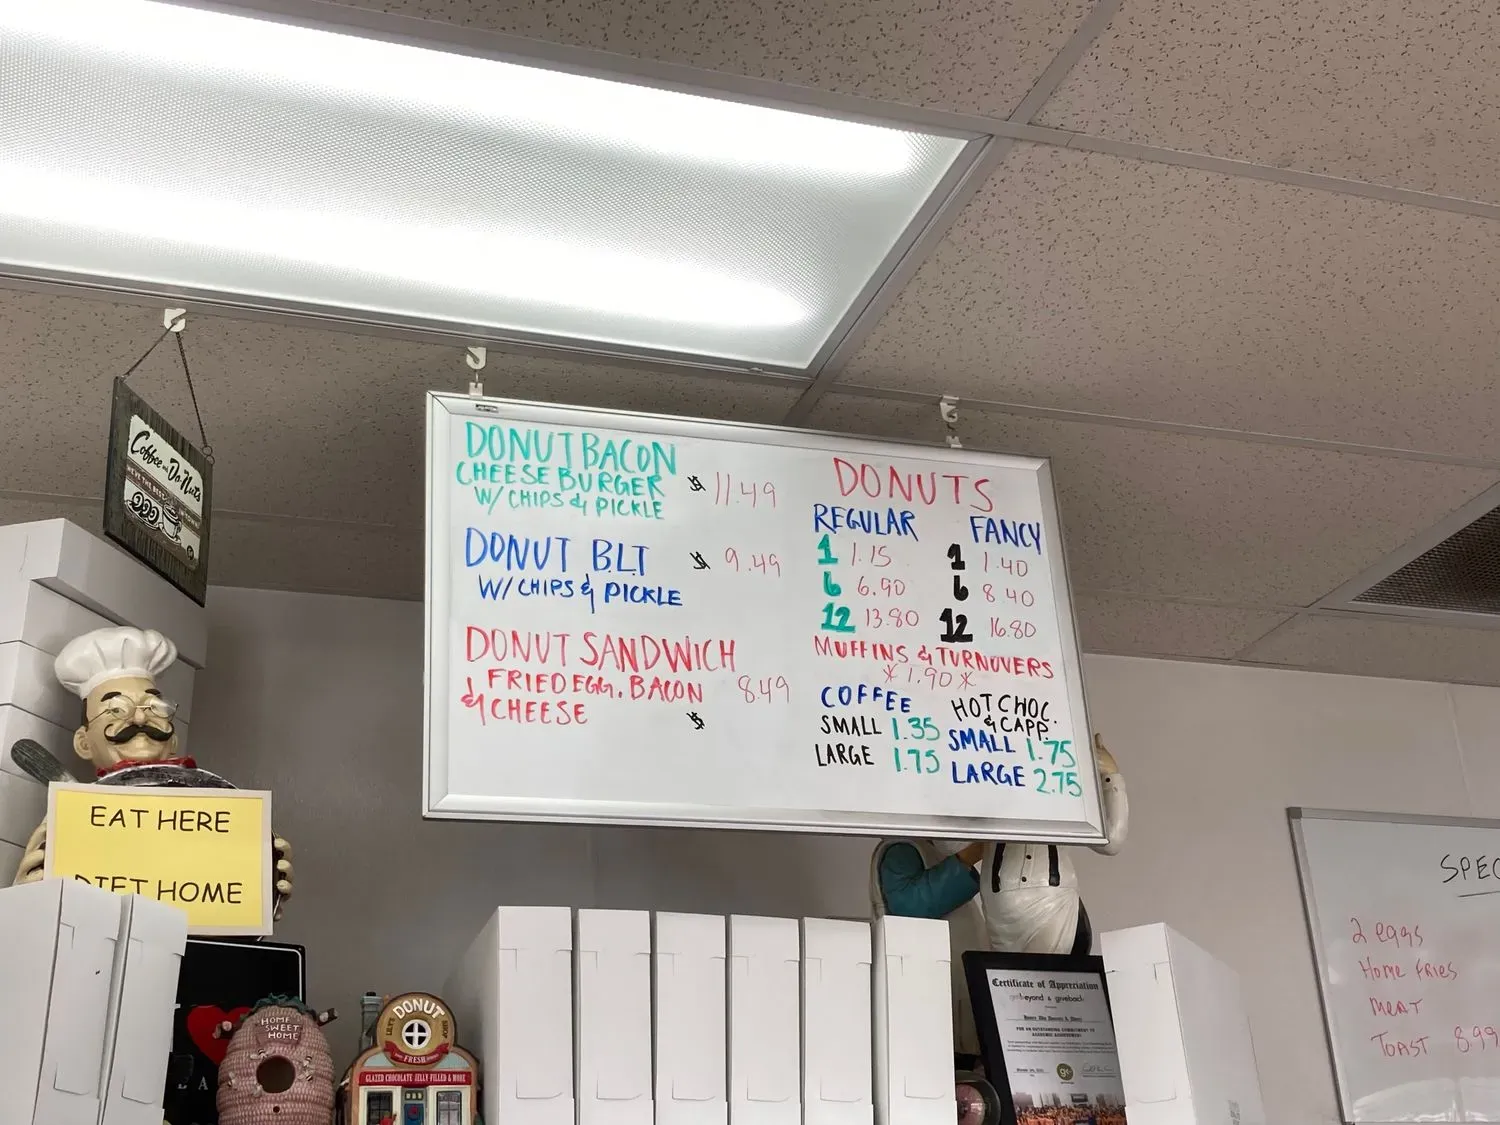 Coffee and Do-Nuts
DONUT BACON
CHEESE BURGER $ 11.49
W/ CHIPS & PICKLE
DONUT B.L.T $ 9.49
W/ CHIPS & PICKLE
DONUT SANDWICH
FRIED EGG. BACON 8.49
& CHEESE $
DONUTS
REGULAR FANCY
1 1.15 1 1.40
6 6.90 6 8.40
12 13.80 12 16.80
MUFFINS & TURNOVERS
* 1.90 *
COFFEE
SMALL 1.35
LARGE 1.75
HOT CHOC.
& CAPP.
SMALL 1.75
LARGE 2.75
EAT HERE
DIET HOME
HOME
SWEET
HOME
DONUT
FRESH
GLAZED CHOCOLATE JELLY FILLED & MORE
Certificate of Appreciation
SPEC
2 eggs
Home Fries
MEAT
TOAST 8.99